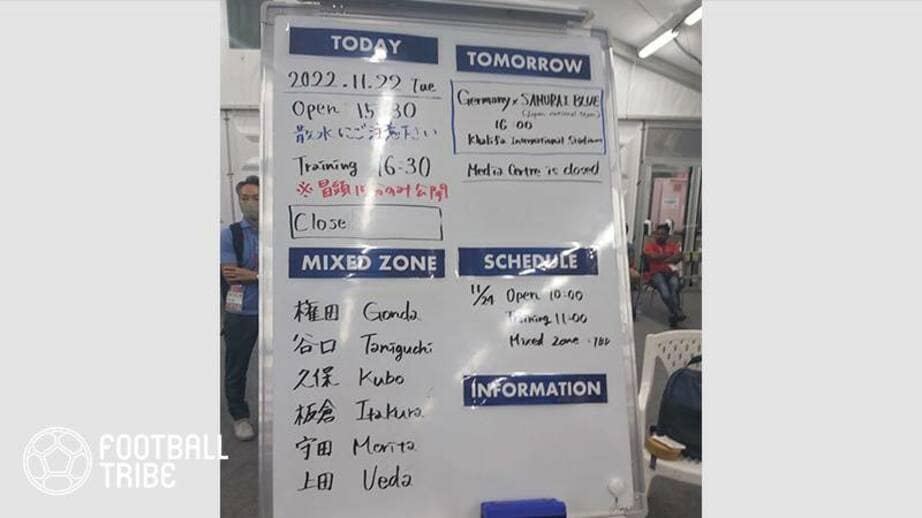 TODAY
2022.11.22 Tue
Open 15:30
散水にご注意下さい
Training 16:30
※冒頭15分のみ公開
Close
MIXED ZONE
権田 Gonda
谷口 Taniguchi
久保 Kubo
板倉 Itakura
守田 Morita
上田 Ueda
TOMORROW
Germany x SAMURAI BLUE
(Japan national team)
16 00
Khalifa International Stadium
Media Centre is closed
SCHEDULE
11/24 Open 10:00
Training 11:00
Mixed Zone
INFORMATION
FOOTBALL
TRIBE